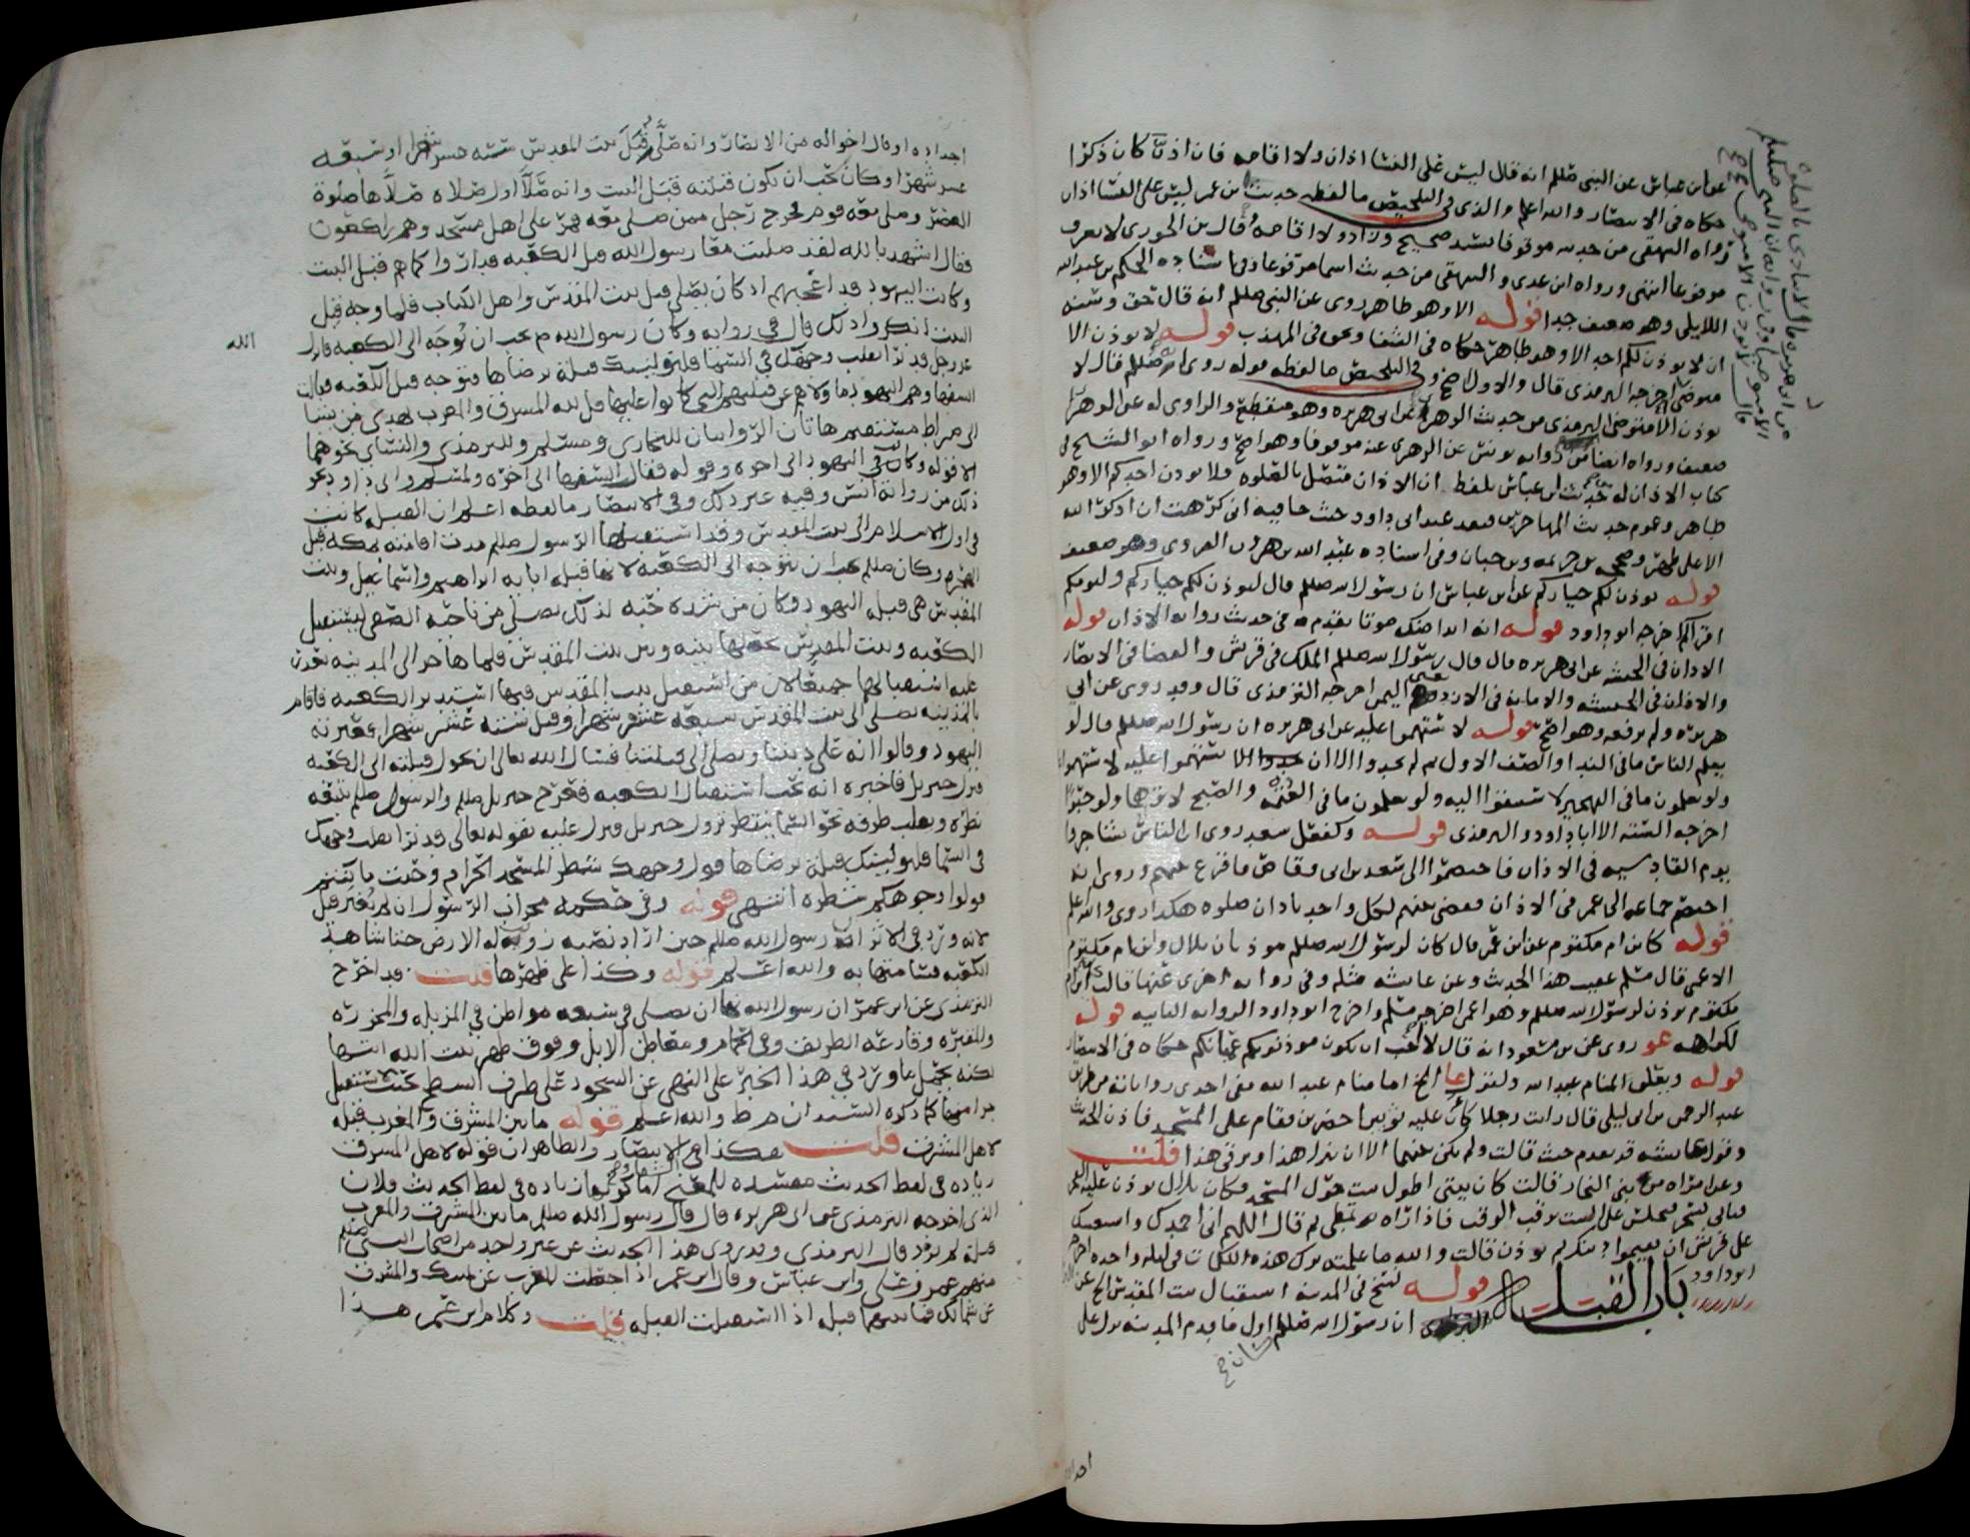 عن ابن عباس عن النبي صللم انه قال ليس على النسا اذان ولا اقامه فان اذنّ كان ذكرا
حكاه في الانتصار والله اعلم والذي في التلخيص ما لفظه حديث ابن عمر ليس على النسا اذان
رواه البيهقي من حديثه موقوفا بسند صحيح وزاد ولا اقامه وقال بن الجوزي لا يعرف
مرفوعا انتهى ورواه ابن عدي والبيهقي من حديث اسما مرفوعا وفي اسناده الحكم بن عبد الله
الايلي وهو ضعيف جدا قوله الا وهو طاهر روي عن النبي صللم انه قال حق وسنه
ان لا يوذن لكم احد الا وهو طاهر حكاه في الشفا ونحوه في المهذب قوله لا يوذن الا
متوضي اخرجه الترمذي قال والاول اصح وفي التلخيص ما لفظه قوله روي انه صللم قال لا
يوذن الا متوضي الترمذي من حديث الزهري عن ابي هريره وهو منقطع والراوي له عن الزهري
ضعيف ورواه ايضا من روايه يونس عن الزهري عنه موقوفا وهو اصح ورواه ابو الشيخ في
كتاب الاذان له من حديث ابن عباس بلفظ ان الاذان متصل بالصلوه فلا يوذن احدكم الا وهو
طاهر وعموم حديث المهاجر بن قنفد عند ابي داود حيث جا فيه اني كرهت ان اذكر الله
الا على طهر وصححه بن خزيمه وبن حبان وفي اسناده عبد الله بن هرون الفروي وهو ضعيف
قوله يوذن لكم خياركم عن ابن عباس ان رسول الله صللم قال ليوذن لكم خياركم وليومكم
اقراكم اخرجه ابو داود قوله انه اندا منك صوتا تقدم في حديث روايه الاذان قوله
الاذان في الحبشه عن ابي هريره قال قال رسول الله صللم الملك في قريش والقضا في الانصار
والاذان في الحبشه والامانه في الازد يعني اليمن اخرجه الترمذي قال وقد روي عن ابي
هريره ولم يرفعه وهو اصح قوله لاستهموا عليه عن ابي هريره ان رسول الله صللم قال لو
يعلم الناس ما في الندا والصف الاول ثم لم يجدوا الا ان يستهموا عليه لاستهموا
ولو يعلمون ما في التهجير لاستبقوا اليه ولو يعلمون ما في العتمه والصبح لاتوهما ولو حبوا
اخرجه السته الا ابا داود والترمذي قوله وكفعل سعد روي ان الناس تشاجروا
يوم القادسيه في الاذان فاختصموا الى سعد بن ابي وقاص فاقرع بينهم وروي انه
اختصم جماعه الى عمر في الاذان فقضى بينهم لكل واحد باذان صلوه هكذا روي والله اعلم
قوله كابن ام مكتوم عن ابن عمر قال كان لرسول الله صللم موذنان بلال وابن ام مكتوم
الاعمى قال مسلم عقيب هذا الحديث وعن عايشه مثله وفي روايه اخرى عنها قالت كان ابن ام
مكتوم يوذن لرسول الله صللم وهو اعمى اخرجه مسلم واخرج ابو داود الروايه الثانيه قوله
لكراهه عو روي عن بن مسعود انه قال لا احب ان يكون موذنوكم عميانكم حكاه في الانتصار
قوله وبعلق المنام عبد الله ولنزل عا الخ اما منام عبد الله ففي احدى رواياته من طريق
عبد الرحمن بن ابي ليلى قال رايت رجلا كان عليه ثوبين اخضرين فقام على المسجد فاذن الحديث
وقول عايشه قد تقدم حيث قالت ولم يكن بينهما الا ان ينزل هذا ويرقى هذا قلت
وعن امراه من بني النجار قالت كان بيتي اطول بيت حول المسجد فكان بلال يوذن عليه الفجر
فياتي بسحر فيجلس على البيت يرقب الوقت فاذا راه تمطى ثم قال اللهم اني احمدك واستعينك
على قريش ان يقيموا دينك ثم يوذن قالت والله ما علمته ترك هذه الكلمات في ليله واحده اخرجه
ابو داود
باب القبلة قوله نسخ في المدينة استقبال بيت المقدس الخ عن
البرا ان رسول الله صللم كان اول ما قدم المدينه نزل على
اجداده او قال اخواله من الانصار وانه صلى قبل بيت المقدس سته عشر شهرا او سبعه
عشر شهرا وكان يحب ان يكون قبلته قبل البيت وانه صلى اول صلاه صلاها صلوة
العصر وصلى معه قوم فخرج رجل ممن صلى معه فمر على اهل مسجد وهم راكعون
فقال اشهد بالله لقد صليت مع رسول الله قبل الكعبه فداروا كما هم قبل البيت
وكانت اليهود قد اعجبهم اذ كان يصلي قبل بيت المقدس واهل الكتاب فلما وجه قبل
البيت انكروا ذلك قال في روايه وكان رسول الله م يحب ان يُوجه الى الكعبه فانزل
الله
عز وجل قد نرى تقلب وجهك في السما فلنولينك قبلة ترضاها فتوجه قبل الكعبه فقالت
السفها وهم اليهود ما ولاهم عن قبلتهم التي كانوا عليها قل لله المشرق والمغرب يهدي من يشا
الى صراط مستقيم هاتان الروايتان للبخاري ومسلم وللترمذي والنساي نحوهما
الا قوله وكان في اليهود الى اخره وقوله فقال السفها الى اخره ولمسلم وابي داود نحو
ذلك من روايه انس وفيه غير ذلك وفي الانتصار ما لفظه اعلم ان القبله كانت
في اول الاسلام الى بيت المقدس وقد استقبلها الرسول صللم مدت اقامته بمكه قبل
الهجره وكان صللم يحب ان يتوجه الى الكعبه لانها قبله ابايه ابراهيم واسماعيل وبيت
المقدس هي قبله اليهود وكان من شده حبه لذلك يصلي من ناحيه الصفا ليستقبل
الكعبه وبيت المقدس يجعلها بينه وبين بيت المقدس فلما هاجر الى المدينه تعذر
عليه استقبالهما جميعا لان من استقبل بيت المقدس فيها استدبر الكعبه فاقام
بالمدينه يصلي الى بيت المقدس سبعه عشر شهرا وقيل سته عشر شهرا فعيرته
اليهود وقالوا انه على ديننا ويصلي الى قبلتنا فسال الله تعالى ان يحول قبلته الى الكعبه
فنزل جبريل فاخبره انه يحب استقبال الكعبه فعرج جبريل صللم والرسول صللم يتبعه
نظره ويقلب طرفه نحو السما ينتظر نزول جبريل فنزل عليه بقوله تعالى قد نرى تقلب وجهك
في السما فلنولينك قبلة ترضاها فول وجهك شطر المسجد الحرام وحيث ما كنتم
فولوا وجوهكم شطره انتهى قوله وفي حكمه محراب الرسول ان لم يُغير قيل
لانه ورد في الاثر ان رسول الله صللم حين اراد نصبه زويت له الارض حتى شاهد
الكعبه فسامتها به والله اعلم قوله وكذا على ظهرها قلت قد اخرج
الترمذي عن ابن عمر ان رسول الله نهى ان يصلى في سبعه مواطن في المزبله والمجزره
والمقبره وقارعه الطريق وفي الحمام ومعاطن الابل وفوق ظهر بيت الله انتهى
لكنه يحتمل ما ورد في هذا الخبر على النهي عن السجود على طرف السطح بحيث لا يستقبل
جزا منها كما ذكره السيدان م ط والله اعلم قوله ما بين المشرق والمغرب قبله
لاهل المشرق قلت هكذا في الانتصار والشفا وغيرهما والظاهر ان قوله لاهل المشرق
زياده في لفظ الحديث مفسده للمعنى اما كونها زياده في لفظ الحديث فلان
الذي اخرجه الترمذي عن ابي هريره قال قال رسول الله صللم ما بين المشرق والمغرب
قبلة لم يزد قال الترمذي وقد روي هذا الحديث عن غير واحد من اصحاب النبي صللم
منهم عمر وعلي وابن عباس وقال ابن عمر اذا جعلت المغرب عن يمينك والمشرق
عن شمالك فما بينهما قبله اذا استقبلت القبله قلت وكلام ابن عمر هذا